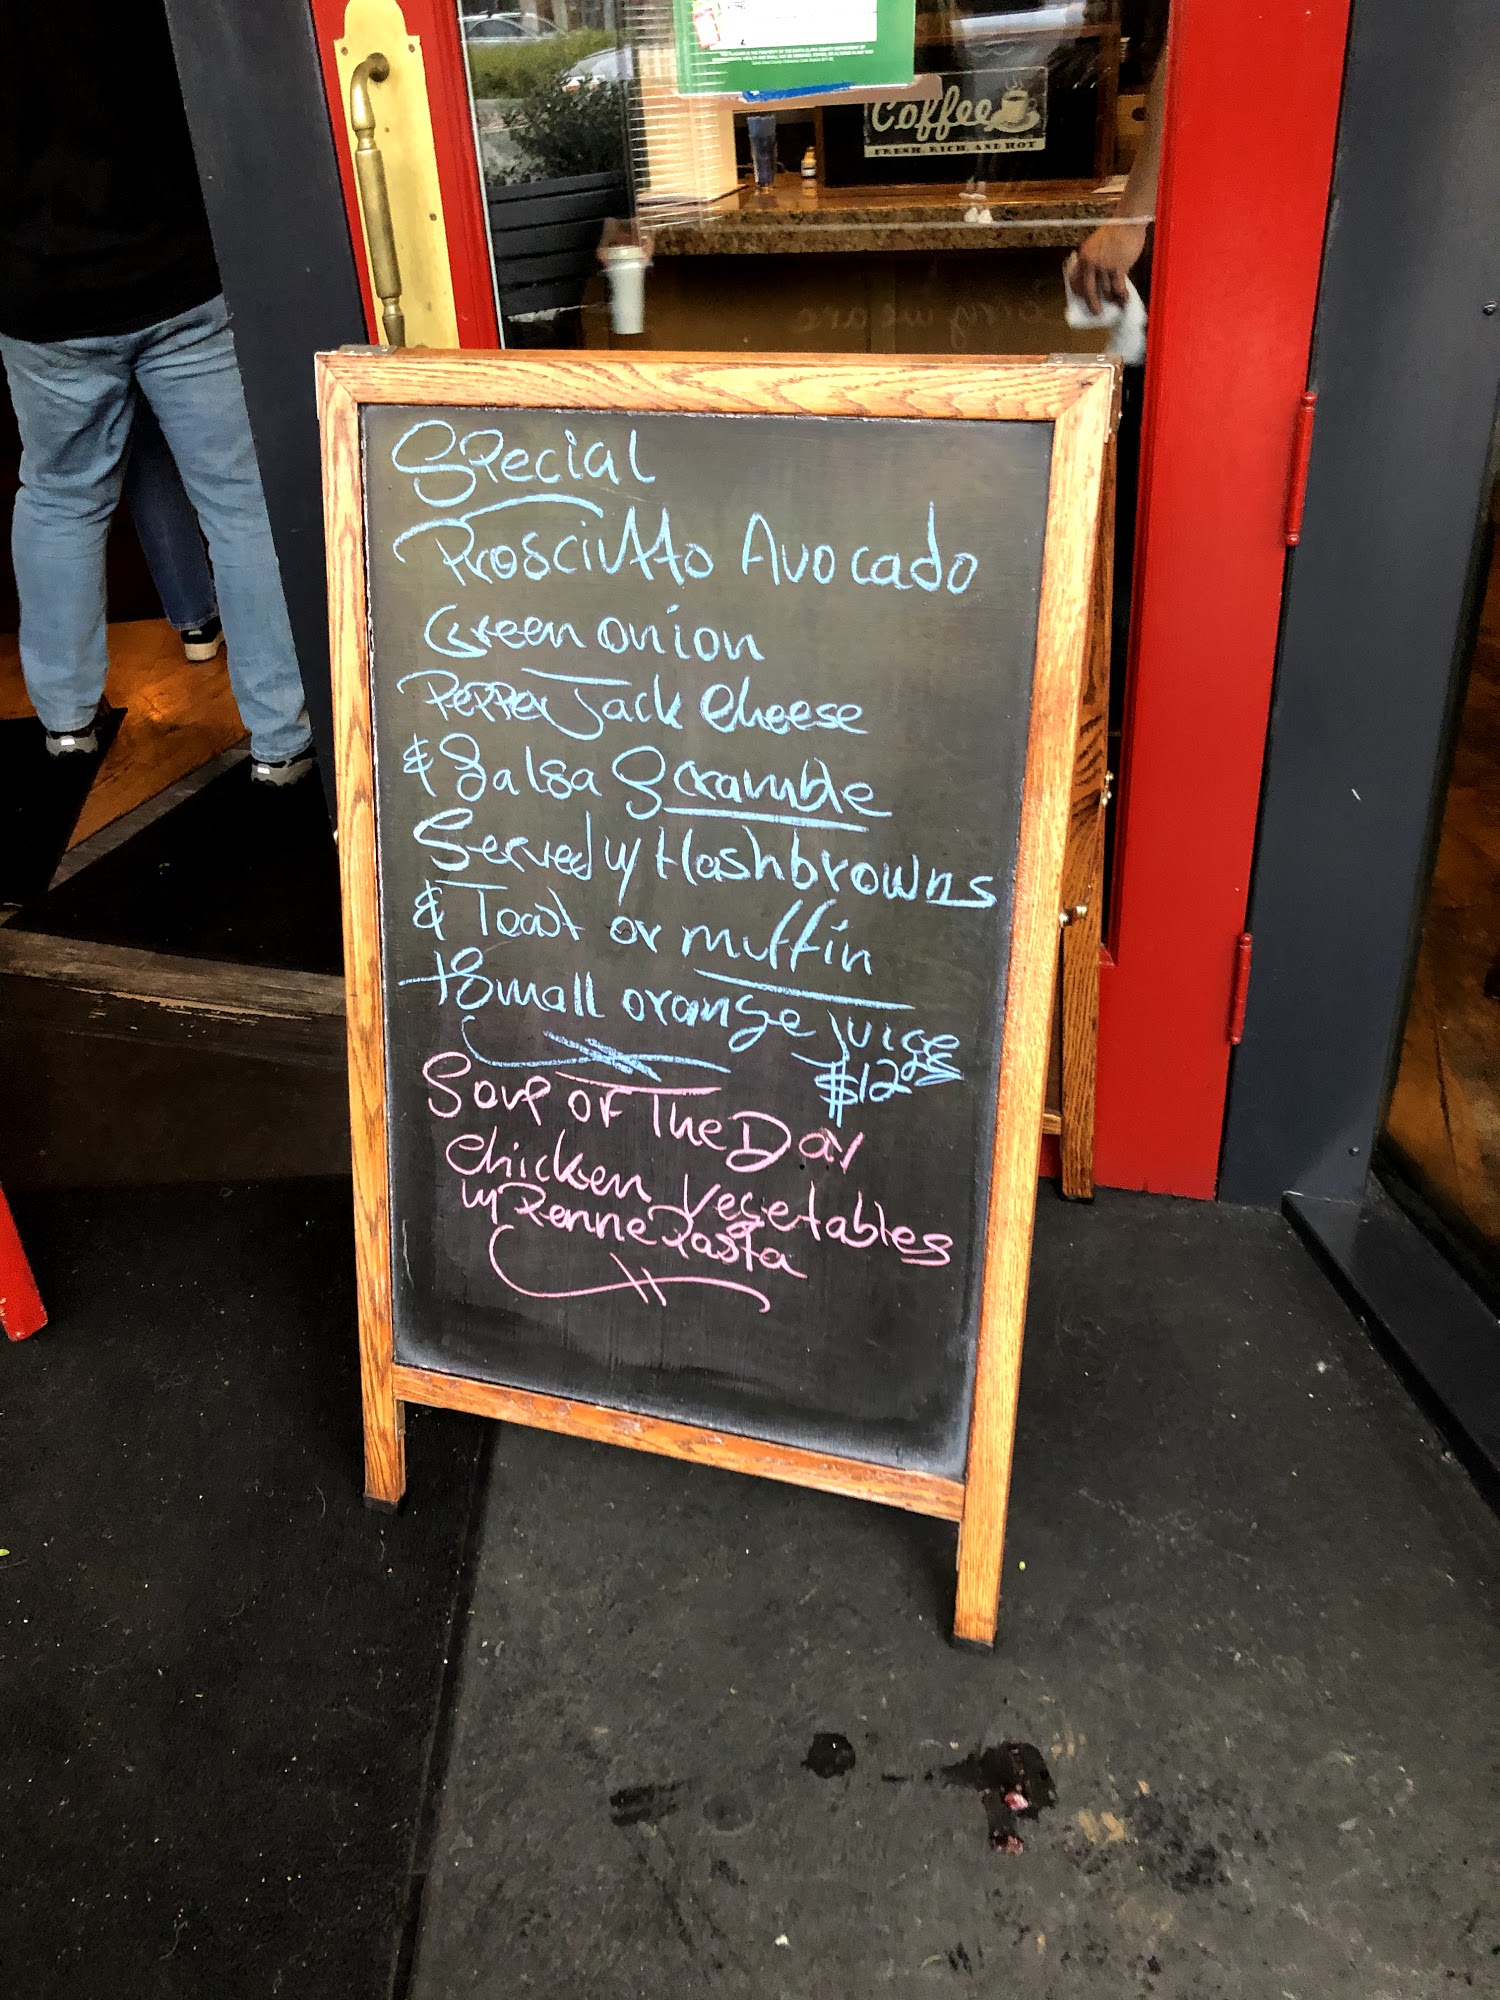 Coffee
FRESH, RICH, AND HOT
Special
Prosciutto Avocado
Green onion
Pepper Jack Cheese
& Salsa Scramble
Served w/ Hashbrowns
& Toast or muffin
+ Small orange juice
$12
Soup of The Day
Chicken vegetables
w/ Penne Pasta